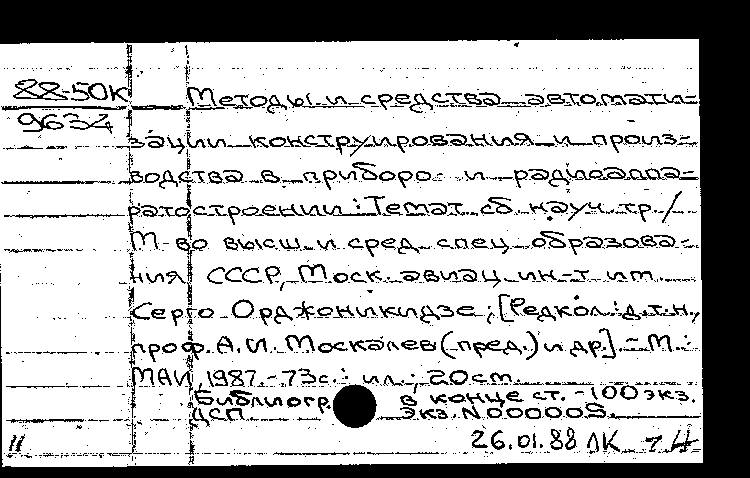 88-50К Методы и средства автомати-
9634
зации конструирования и произ-
водства в приборо- и радиоаппа-
ратостроении : Темат. сб. науч. тр. /
М-во высш. и сред. спец. образова-
ния СССР, Моск. авиац. ин-т им.
Серго Орджоникидзе ; [Редкол.: д.т.н.,
проф. А.И. Москалев (пред.) и др.] - М.:
МАИ, 1987. - 73с. : ил. ; 20см.
Библиогр. в конце ст. - 100 экз.
ДСП. Экз. N 000005.
11 26.01.88 ЛК